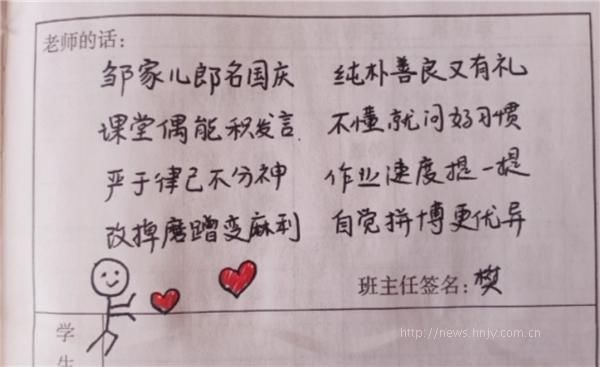 老师的话:
邹家儿郎名国庆 纯朴善良又有礼
课堂偶能积发言 不懂就问好习惯
严于律己不分神 作业速度提一提
改掉磨蹭变麻利 自觉拼博更优异
班主任签名:樊
http://news.hnjy.com.cn
学
生